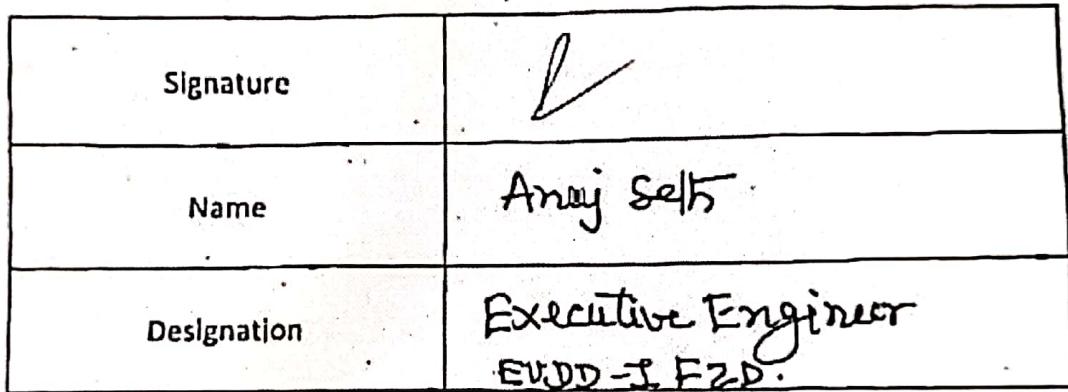 Signature
Name Anuj Seth
Designation Executive Engineer
EUDD-I FZD.